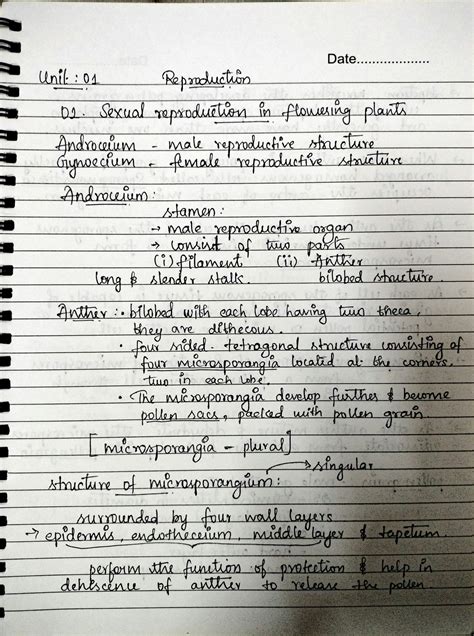 Date...................
Unit : 01 Reproduction
01. Sexual reproduction in flowering plants
Androceium - male reproductive structure
Gynoecium - female reproductive structure
Androceium:
stamen:
→ male reproductive organ
→ consist of two parts
(i) filament (ii) Anther
long & slender stalk. bilobed structure.
Anther :• bilobed with each lobe having two theca,
they are dithecous.
• four sided - tetragonal structure consisting of
four microsporangia located at the corners,
two in each lobe.
• The microsporangia develop further & become
pollen sacs, packed with pollen grain.
[microsporangia - plural]
→ singular
structure of microsporangium:
surrounded by four wall layers
→ epidermis, endothecium, middle layer & tapetum.
perform the function of protection & help in
dehscence of anther to release the pollen.